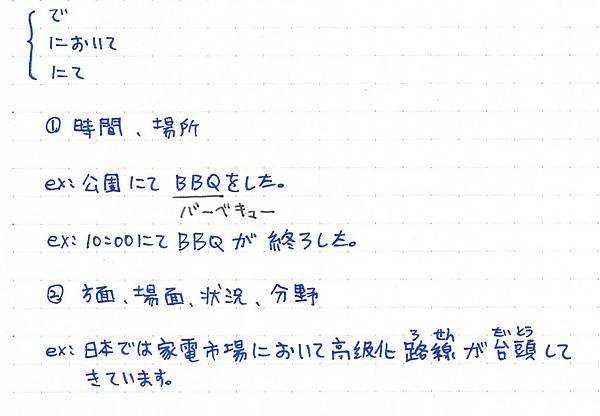 で
において
にて
① 時間、場所
ex: 公園にて BBQをした。
バーベキュー
ex: 10:00にて BBQ が 終了した。
② 方面、場面、状況、分野
ろ せん たいとう
ex: 日本では家電市場において高級化 路線 が 台頭して
きています。